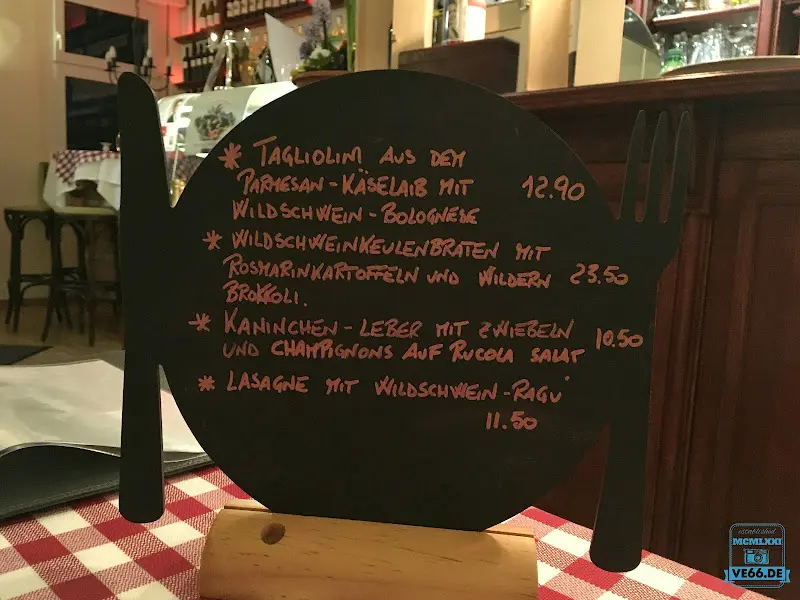 * TAGLIOLINI AUS DEM
PARMESAN-KÄSELAIB MIT 12.90
WILDSCHWEIN-BOLOGNESE
* WILDSCHWEINKEULENBRATEN MIT
ROSMARINKARTOFFELN UND WILDERN 23.50
BROKKOLI.
* KANINCHEN-LEBER MIT ZWIEBELN 10.50
UND CHAMPIGNONS AUF RUCOLA SALAT
* LASAGNE MIT WILDSCHWEIN-RAGU'
11.50
established
MCMLXXI
VE66.DE